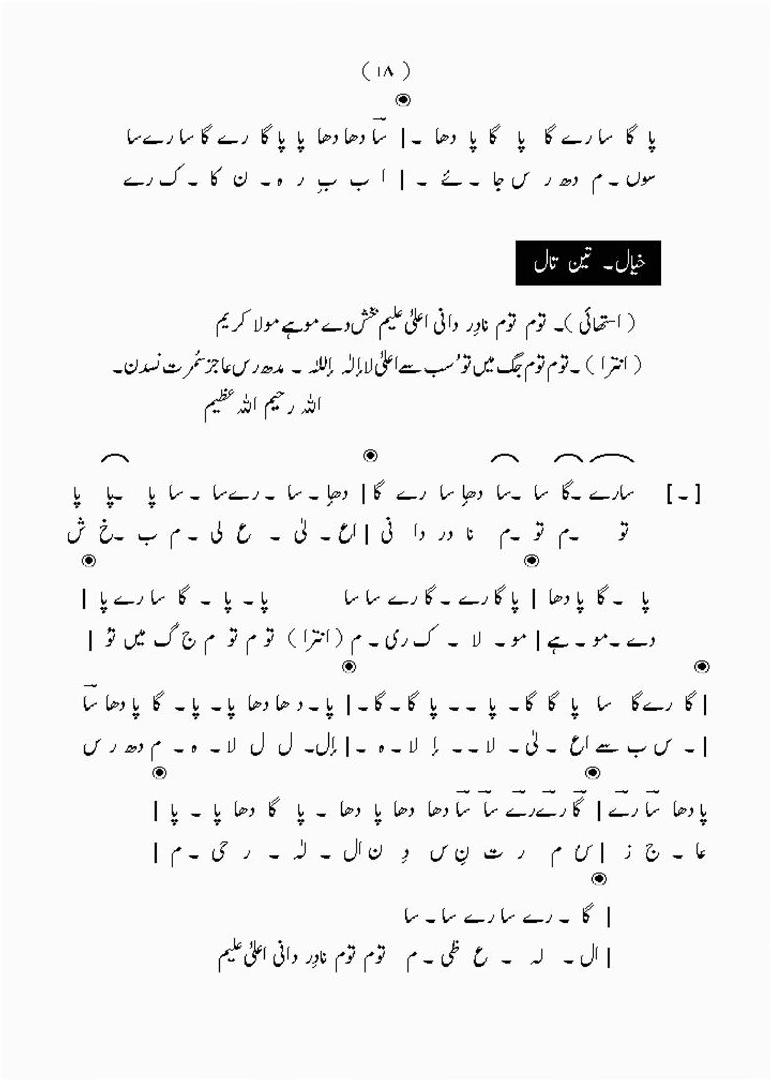 ( ۱۸ )
پا گا سا رے گا پا گا پا دھا ۔ | سا دھا دھا دھا پا پا گا رے گا سا رے سا
سوں ۔ م دھ ر س جا ۔ ئے ۔ | ا ب ب ر ہ ۔ ن کا ۔ ک رے
خیال ۔ تین تال
( استھائی )۔ توم توم نادِر دانی اعلیٰ علیم بخش دے موہے مولا کریم
( انترا )۔ توم توم جگ میں توُ سب سے اعلیٰ لا إلٰہ إللہ ۔ مدھ رس عاجز سُمرت نسدن۔
اللہ رحیم اللہ عظیم
[ ۔ ] سارے ۔گا سا ۔سا دھا سا رے گا | دھا ۔ سا ۔ رے سا ۔ سا پا ۔پا پا
تو ۔م تو ۔م نا در دا نی | اع ۔ لیٰ ۔ ع لی ۔ م ب ۔خ ش
پا ۔ گا پا دھا | پا گا رے ۔ گا رے سا سا پا ۔ پا ۔ گا سا رے پا |
دے ۔ مو ۔ ہے | مو ۔ لا ۔ ک ری ۔ م ( انترا ) تو م تو م ج گ میں توُ |
| گا رے گا سا پا گا گا ۔ پا ۔ ۔ پا گا ۔ گا ۔ | پا ۔ دھا دھا پا ۔ پا ۔ گا پا دھا سا
| ۔ س ب سے اع ۔ لیٰ ۔ لا ۔ ۔ إ لا ۔ ہ ۔ | إل ۔ ل ل لا ۔ ہ ۔ م دھ ر س
پا دھا سا رے | گا رے رے سا سا دھا دھا پا دھا ۔ پا گا دھا پا ۔ پا |
عا ۔ ج ز | سُ م ر ت نِ س دِ ن ال ۔ لہٰ ۔ ر حی ۔ م |
| گا ۔ رے سا رے سا ۔ سا
| ال ۔ لہ ۔ ع ظی ۔ م توم توم نادِر دانی اعلیٰ علیم